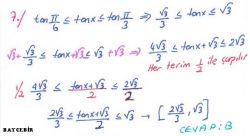 7/ tan π/6 ≤ tanx ≤ tan π/3 ⇒ √3/3 ≤ tanx ≤ √3
√3+ √3/3 ≤ tanx+√3 ≤ √3 +√3 ⇒ 4√3/3 ≤ tanx+√3 ≤ 2√3
Her terim 1/2 ile çarpılır
1/2 4√3/3 ≤ tanx+√3/2 ≤ 2√3/2
2√3/3 ≤ tanx+√3/2 ≤ √3 → [2√3/3, √3]
CEVAP: B
BAYCEBİR